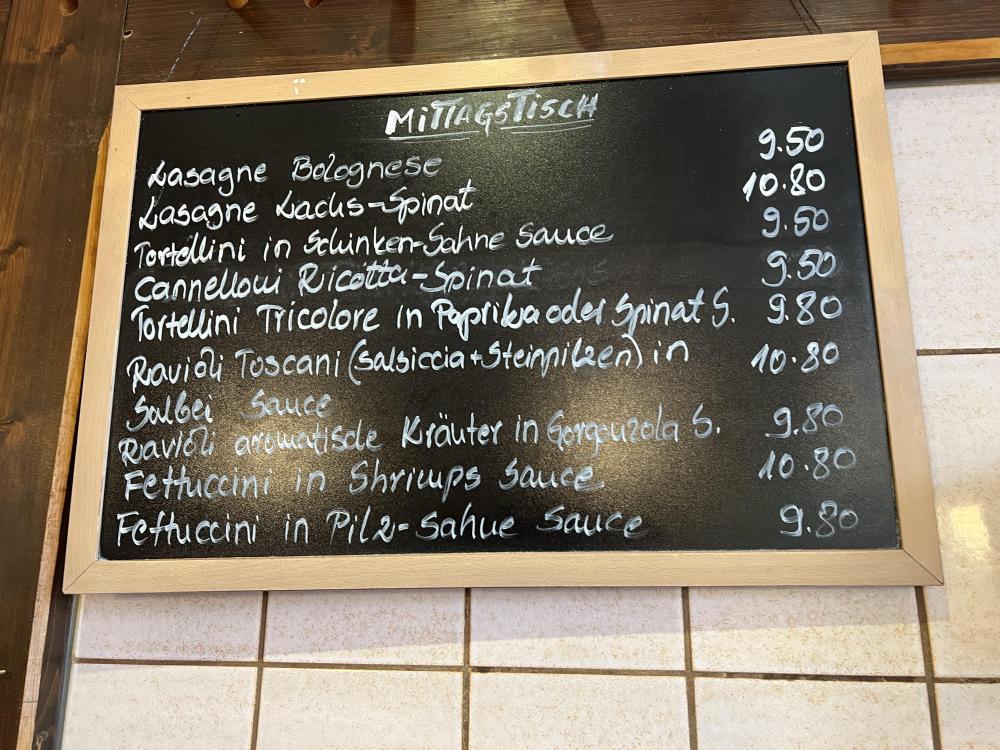 MITTAGSTISCH
Lasagne Bolognese 9.50
Lasagne Lachs-Spinat 10.80
Tortellini in Schinken-Sahne Sauce 9.50
Cannelloni Ricotta-Spinat 9.50
Tortellini Tricolore in Paprika oder Spinat S. 9.80
Ravioli Toscani (Salsiccia + Steinpilzen) in 10.80
Salbei Sauce
Ravioli aromatische Kräuter in Gorgonzola S. 9.80
Fettuccini in Shrimps Sauce 10.80
Fettuccini in Pilz-Sahne Sauce 9.80